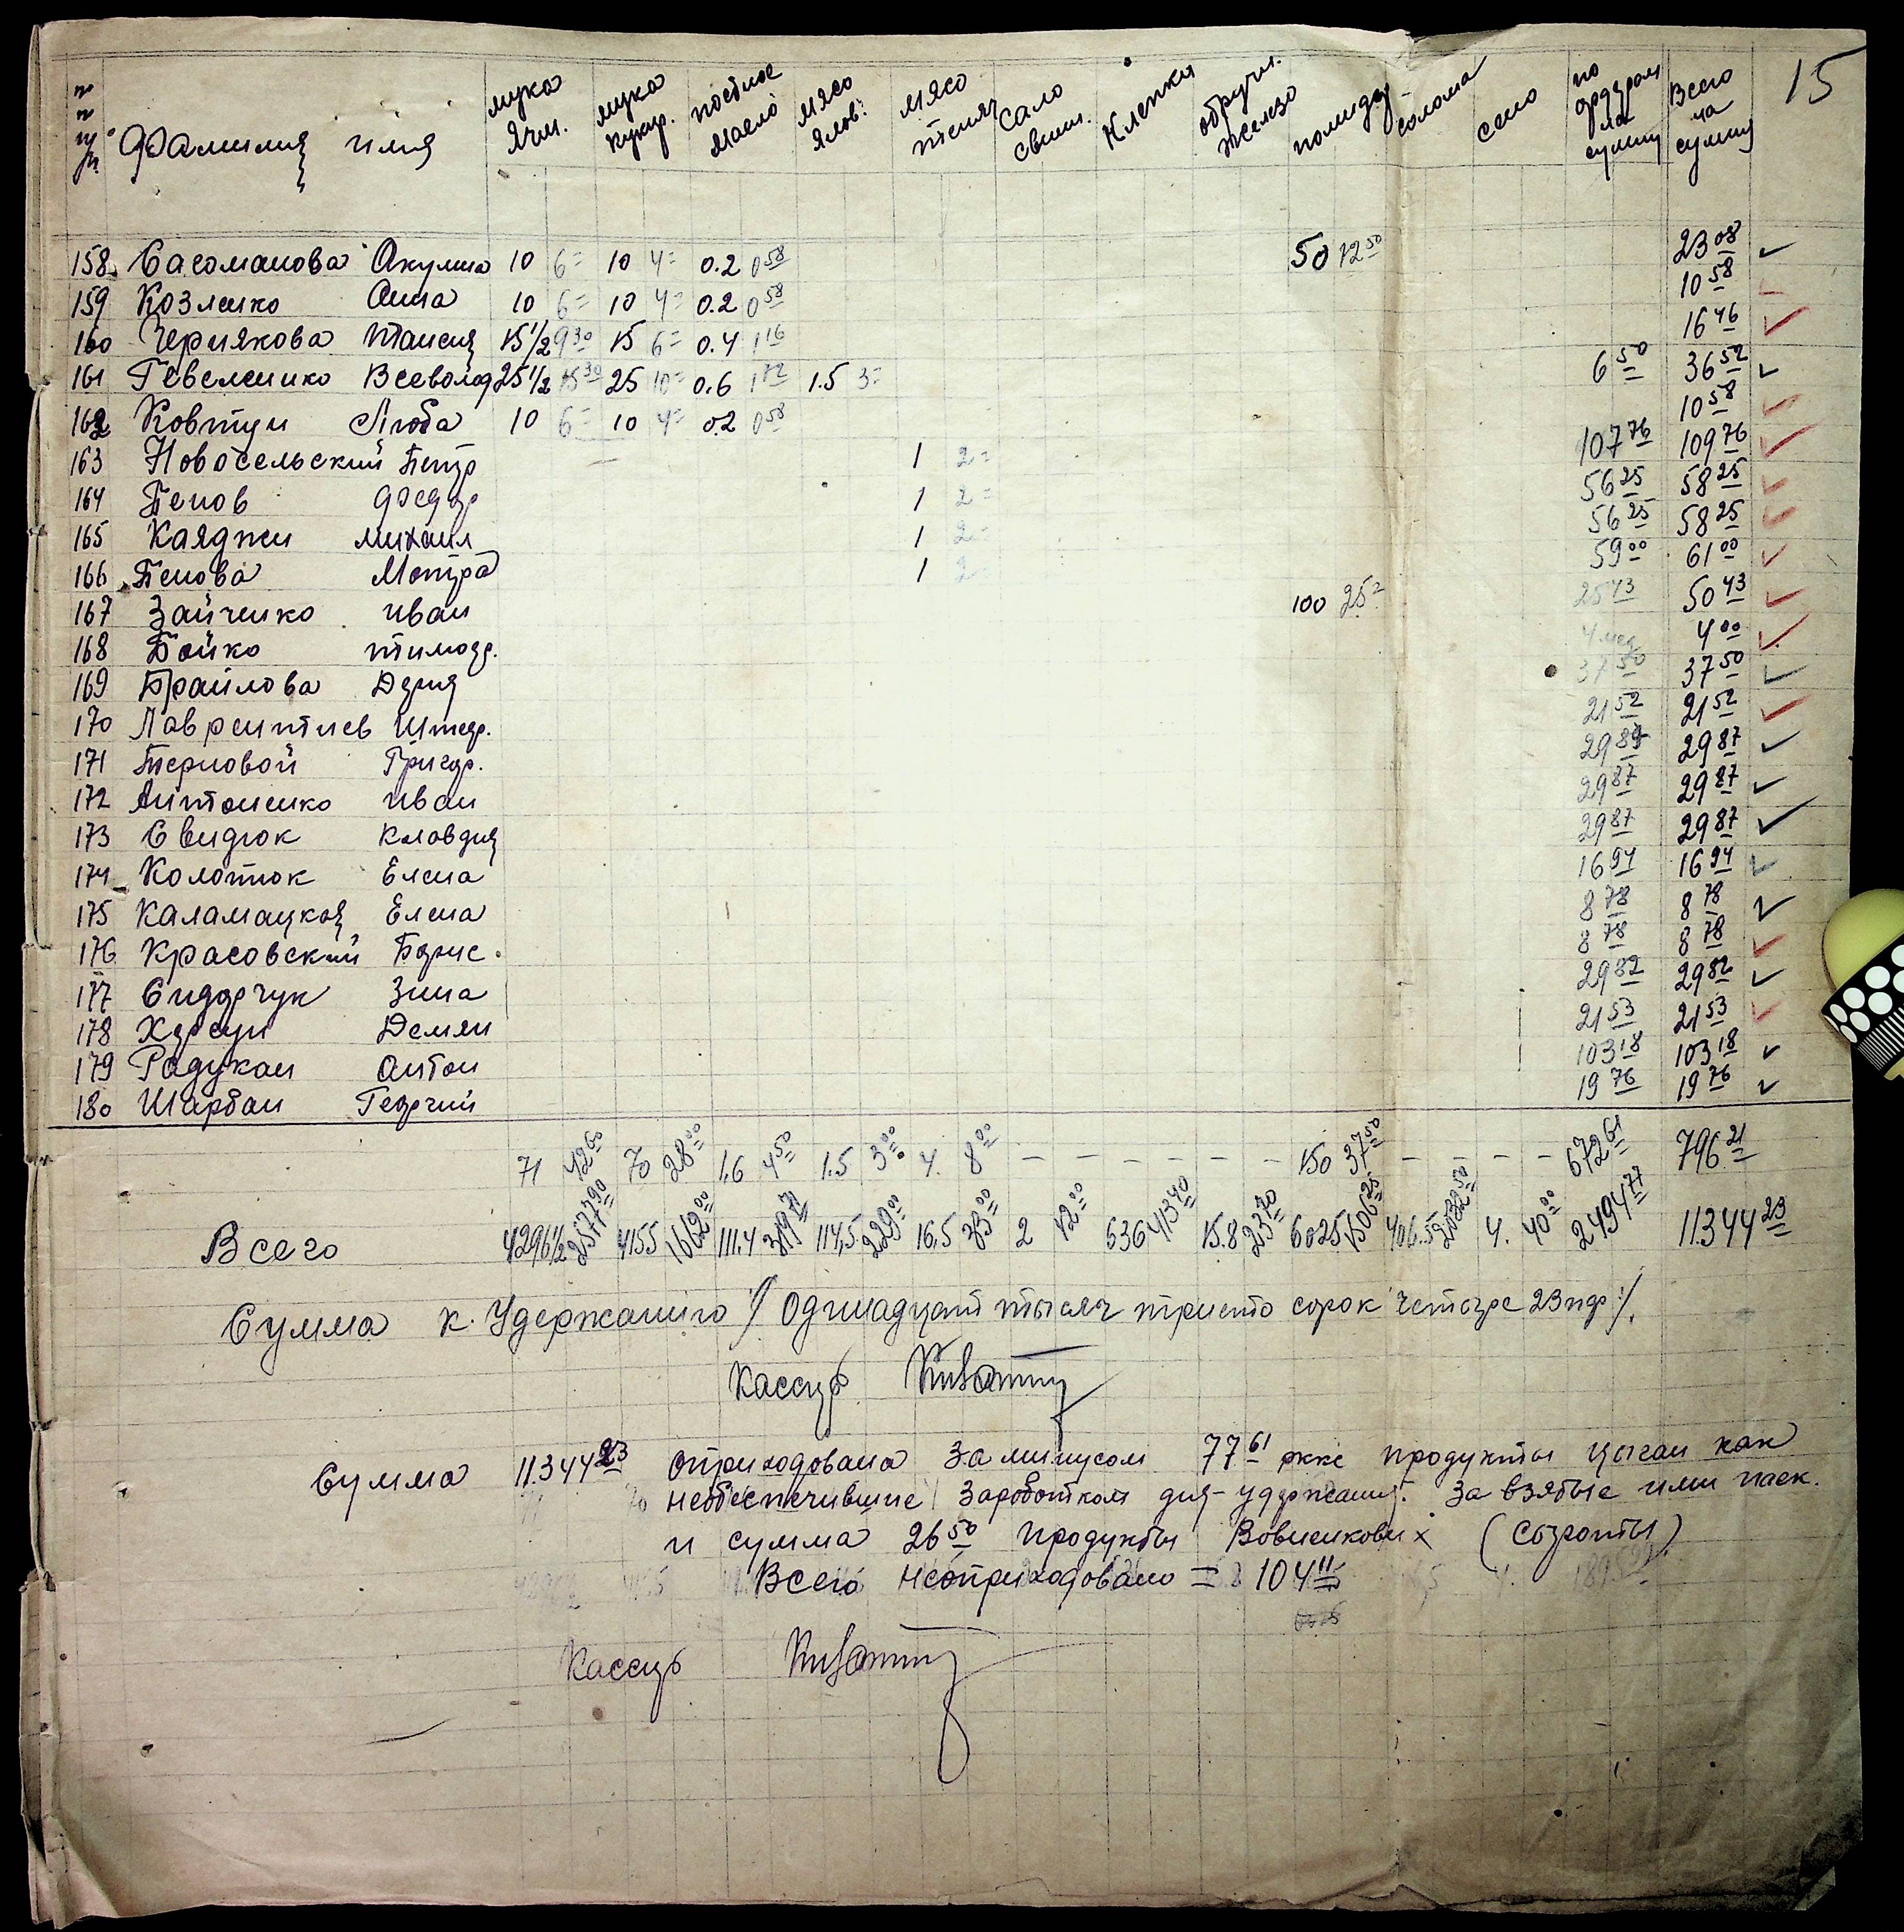 15
№ п/п Фамилия имя мука ячм. мука кукур. постное масло мясо ялов. мясо телят. Сало свин. Клепки обручн. железо помидор солома сено по ордерам на сумму Всего на сумму
158 Сасоманова Акулина 10 6= 10 4= 0.2 0 58 50 12 50 23 08
159 Козленко Анна 10 6= 10 4= 0.2 0 58 10 58
160 Чернякова Таисия 15 1/2 9 30 15 6= 0.4 1 16 16 46
161 Гевеленко Всеволод 25 1/2 15 30 25 10= 0.6 1 72 1.5 3= 6 50 36 52
162 Ковтун Люба 10 6= 10 4= 0.2 0 58 10 58
163 Новосельский Петр 1 2= 107 76 109 76
164 Пенов Федор 1 2= 56 25 58 25
165 Каяджи михаил 1 2= 56 25 58 25
166 Пенова Мотра 1 2- 59 00 61 00
167 Зайченко иван 100 25= 25 43 50 43
168 Бойко тимоф. 4 00
169 Браилова Дария 37 50 37 50
170 Лаврентиев Штефр. 21 52 21 52
171 Терновой Григор. 29 87 29 87
172 Антоненко иван 29 87 29 87
173 Свидюк Клавдия 29 87 29 87
174 Колотюк Елена 16 94 16 94
175 Каламацкая Елена 8 78 8 78
176 Красовский Борис. 8 78 8 78
177 Сидорчук Зина 29 82 29 82
178 Херсун Демян 21 53 21 53
179 Радукан антон 103 18 103 18
180 Шарбан Георгий 19 76 19 76
71 42 60 70 28 00 1.6 4 50 1.5 3 00 4. 8 00 - - - - - - 150 37 50 - - - - 672 61 796 21
Всего 4296 1/2 2577 90 4155 1662 00 111.4 319 71 114,5 229 00 16,5 33 00 2 42 00 636 413 40 15.8 23 70 6025 1506 25 406.5 2032 50 4. 40 00 2494 77 11344 23
Сумма к. Удержанию /: Одинадцат тысяч тристо сорок четыре 23 пф :/.
Кассир
Сумма 11.344 23 оприходована за минусом 77 61 ркке продукты цыган как
необеспечившие заработком для удержания. За взятые ими паек.
и сумма 26 50 продукты Вовненкових (Сыроты)
Всего неоприходовано = 104 11
Кассир